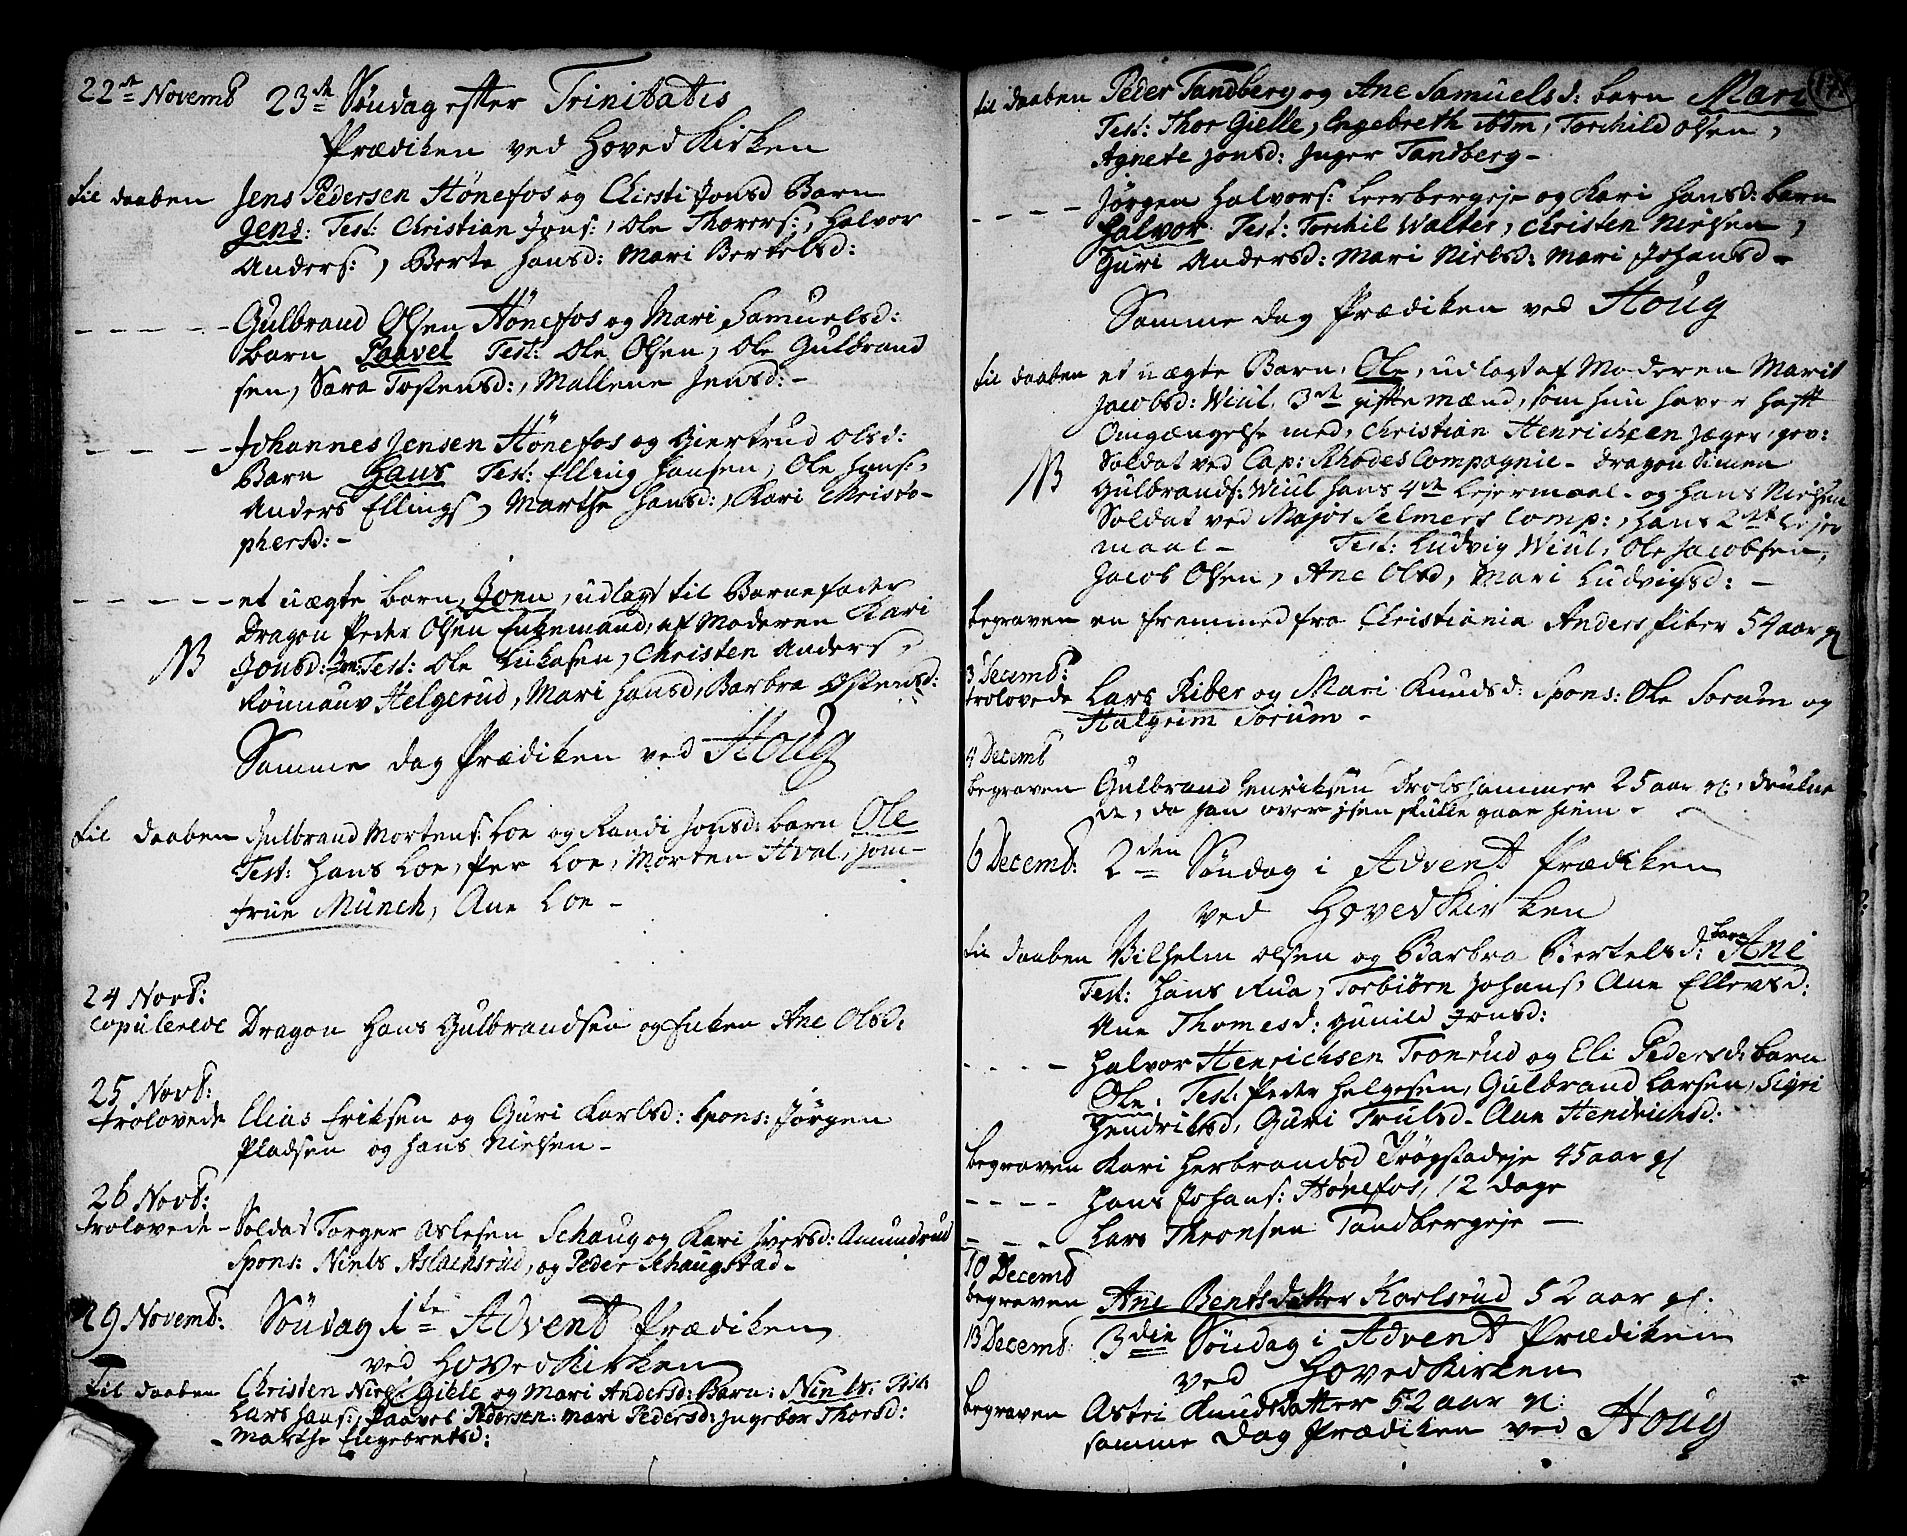 22de Novemb 23de Søndag efter Trinitatis
Prædiken ved HovedKirken
til daaben Jens Pedersen Hønefos og Chirsti Jonsd Barn
Jens: Test: Christian Jons:, Ole Thorers:, Halvor
Anders:, Berte Hansd: Mari Bertelsd:
---- Gulbrand Olsen Hønefos og Mari Samuelsd:
barn Paavel Test: Ole Olsen, Ole Gulbrand
sen, Sara Tostensd:, Mallene Jensd:-
---- Johannes Jensen Hønefos og Giertrud Olsd:
Barn Hans Test: Elling Hansen, Ole Hans:,
Anders Ellings, Marthe Hansd:, Kari Christo-
phersd:-
---- et uægte barn, Joen, udlagt til Barnefader
Dragon Peder Olsen Enkemand, af Moderen Kari
NB Jonsd: Test: Ole Lukasen, Christen Anders,
Rønnauv Helgerud, Mari Hansd, Barbra Ostensd:
Samme dag Prædiken ved Houg
til daaben Gulbrand Mortens: Loe og Randi Jonsd: barn Ole
Test: Hans Loe, Per Loe, Morten Hval, Jom-
frue Münch, Ane Loe -
24 Novb:
Copulerede Dragon Hans Gulbrandsen og Enken Ane Olsd:
25 Novb:
trolovede Elias Eriksen og Guri Karlsd: Spons: Jørgen
Pladsen og Hans Nielsen -
26 Novb:
trolovede - Soldat Torger Aslesen Schaug og Kari Iversd: Amundrud
Spons: Niels Aslachsrud, og Peder Schaugstad -
29 Novemb: Søndag 1te Advent Prædiken
ved HovedKirken
til daaben Christen Niels: Gielle og Mari Andersd: Barn: Niels: Test:
Lars Hans:, Paavel Pedersen: Mari Pedersd: Ingebor Thorsd:
- Marthe Engebretsd:
til daaben Peder Tandberg og Ane Samuelsd: barn Mari
Test: Thor Gielle, Engebreth ibdm, Torchild Olsen,
Agnete Jonsd: Inger Tandberg -
---- Jørgen Halvors: Leerbergeje og Kari Hansd: barn
Halvor Test: Torchil Walter, Christen Nielsen,
Guri Andersd: Mari Nielsd: Mari Johansd -
Samme dag Prædiken ved Houg
til daaben et uægte Barn, Ole, udlagt af Moderen Marit
Jacobsd: Wiul, 3de gifte mænd, som hun haver haft
Omgængelse med, Christian Henrichsen Jæger, gev:
NB Soldat ved Cap: Rhodes Compagnie - Dragon Simen
Gulbrands: Wiul hans 4de Lejermaal - og Hans Nielsen
Soldat ved Major Selmers Comp:, hans 2de Lejer
maal - Test: Ludvig Wiul, Ole Jacobsen,
Jacob Olsen, Ane Olsd, Mari Ludvigsd: -
begraven en fremmed fra Christiania Anders Piber 54 aar gl
3 Decemb:
trolovede Lars Riber og Mari Knudsd: Spons: Ole Sorum og
Halgrim Sorum -
4 Decemb
begraven Gulbrand Henriksen Trolshammer 25 aar gl:, druknede
de, da han over isen skulle gaae hiem -
6 Decemb: 2den Søndag i Advent Prædiken
ved HovedKirken
til daaben Vilhelm Olsen og Barbra Bertelsd: barn Ane
Test: Hans Rua, Torbiørn Johans, Ane Ellevsd:
Ane Thomesd: Gunild Jonsd:
---- Halvor Henrichsen Tronrud og Eli Pedersd: barn
Ole. Test: Peder Helgesen, Gulbrand Larsen, Sigri
Hendriksd, Guri Trulsd - Ane Hendrichsd:
begraven Kari Herbrandsd Trøgstadeje 45 aar gl
---- Hans Johans: Hønefos, 12 dage
--- Lars Thronsen Tandbergeje —
10 Decemb
begraven Ane Bentsdatter Karlsrud 52 aar gl.
13 Decemb 3die Søndag i Advent Prædiken
ved HovedKirken
begraven Astri Knudsdatter 52 aar gl:
samme Dag Prædiken ved Houg